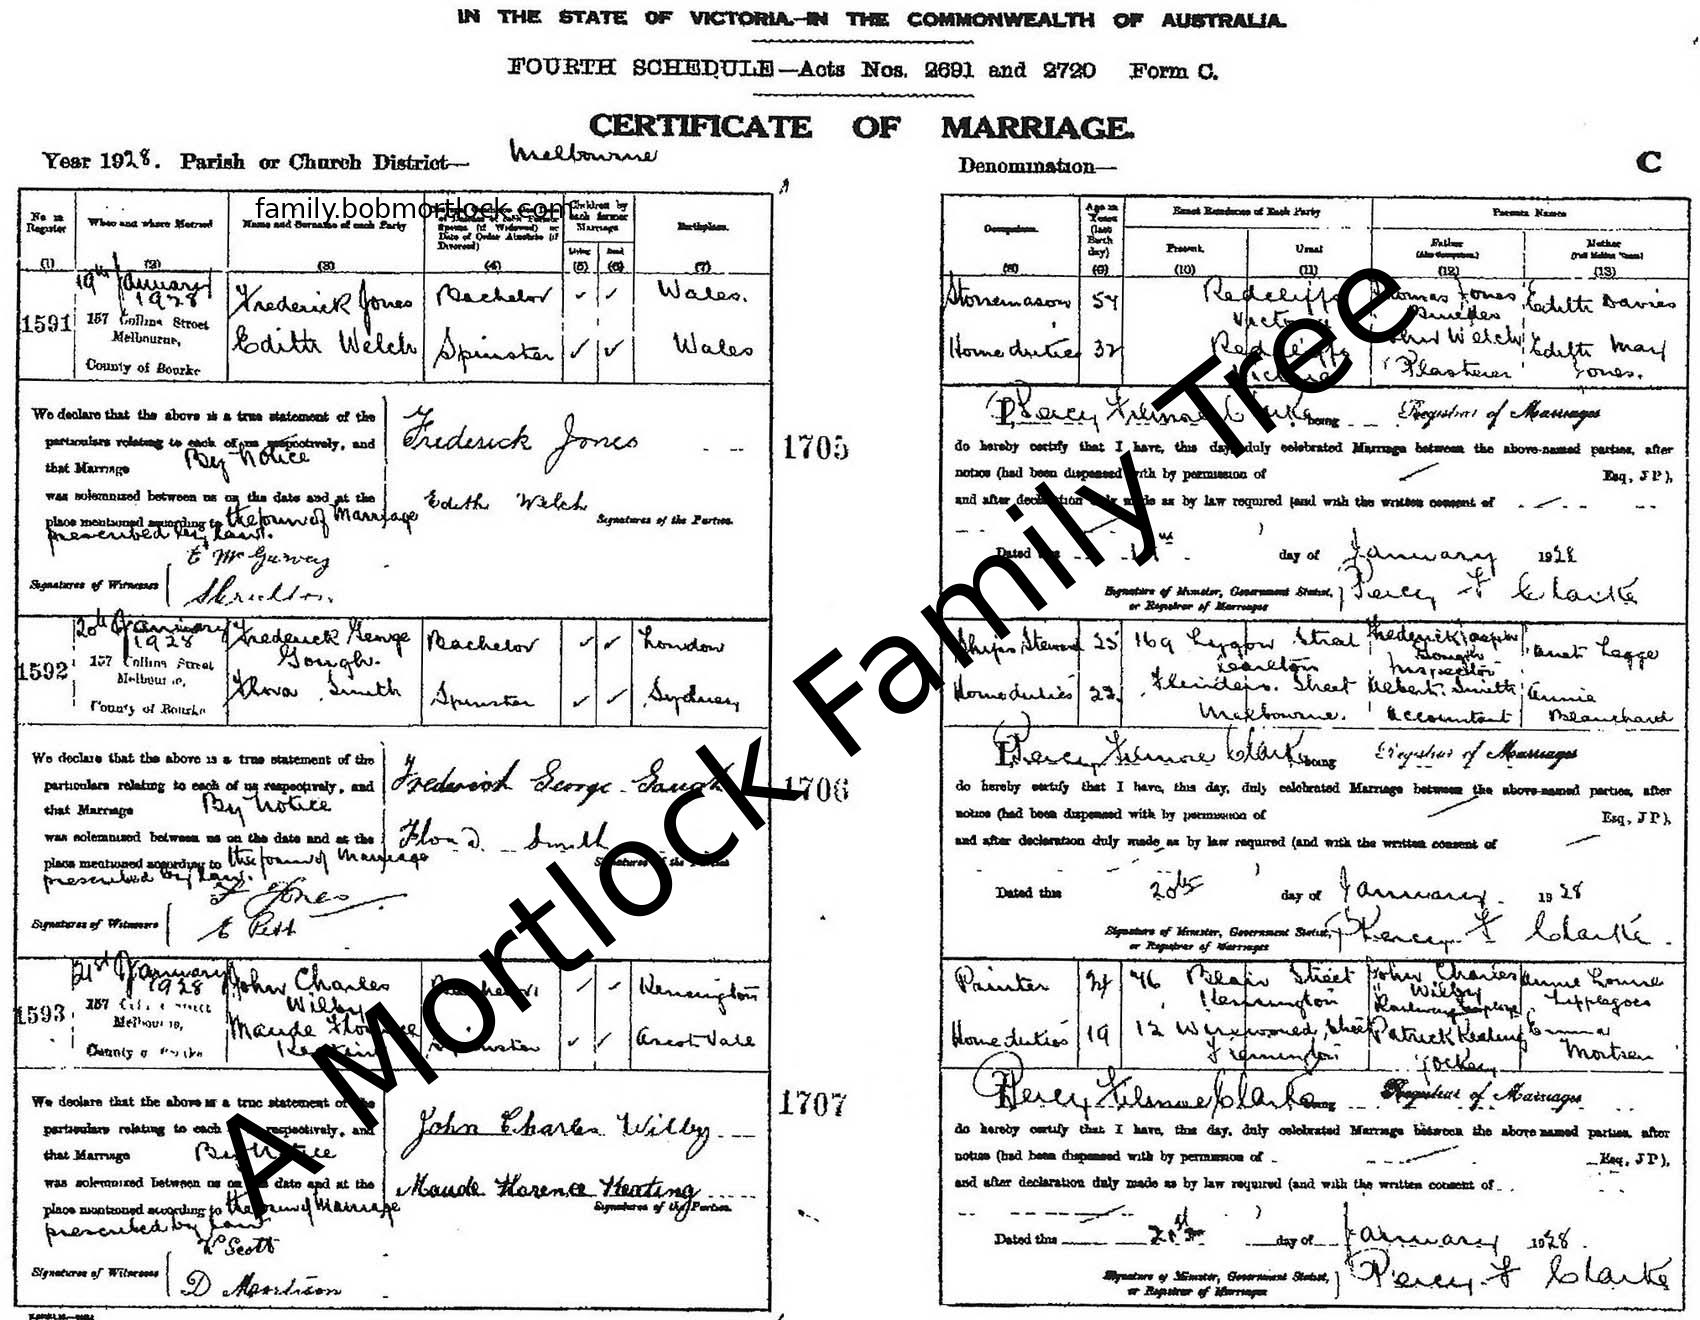 IN THE STATE OF VICTORIA.—IN THE COMMONWEALTH OF AUSTRALIA.
FOURTH SCHEDULE—Acts Nos. 2691 and 2720 Form C.
CERTIFICATE OF MARRIAGE.
Year 1928. Parish or Church District— Melbourne
Denomination— C
family.bobmortlock.com
No. in Register When and where Married Name and Surname of each Party Children by each former Marriage Birthplace.
Living Dead
(1) (2) (3) (4) (5) (6) (7)
Occupation. Age in Years (last Birth day) Exact Residence of Each Party Parents Names
Present. Usual Father Mother
(8) (9) (10) (11) (12) (13)
1591 19th January 1928
157 Collins Street Melbourne,
County of Bourke
Frederick Jones Bachelor ✓ ✓ Wales.
Edith Welch Spinster ✓ ✓ Wales
Stonemason 54 Thomas Jones Edith Davies
Home duties 32 Welch Plasterer Edith May Jones.
We declare that the above is a true statement of the
particulars relating to each of us respectively, and
that Marriage By Notice
was solemnized between us on the date and at the
place mentioned according to the form of Marriage
prescribed by law.
Frederick Jones
Edith Welch
Signatures of the Parties.
Signatures of Witnesses E McGurvey
1705
I, Percy Clarke being Registrar of Marriages
do hereby certify that I have, this day, duly celebrated Marriage between the above-named parties, after
notice (had been dispensed with by permission of Esq, J P),
and after declaration duly made as by law required (and with the written consent of
Dated this day of January 1928
Signature of Minister, Government Statist, or Registrar of Marriages Percy F Clarke
1592 20th January 1928
157 Collins Street Melbourne,
County of Bourke
Frederick George Gough. Bachelor ✓ ✓ London
Flora Smith Spinster ✓ ✓ Sydney
Ships Steward 25 169 Lygon Street Carlton Frederick Gough Inspector Legge
Home duties 22 Flinders Street Melbourne. Albert Smith Accountant Annie Blanchard
We declare that the above is a true statement of the
particulars relating to each of us respectively, and
that Marriage By Notice
was solemnized between us on the date and at the
place mentioned according to the form of Marriage
prescribed by law.
Frederick George Gough
Flora Smith
Signatures of the Parties
Signatures of Witnesses F Jones
E Pett
1706
I, Percy Clarke being Registrar of Marriages
do hereby certify that I have, this day, duly celebrated Marriage between the above-named parties, after
notice (had been dispensed with by permission of Esq, J P),
and after declaration duly made as by law required (and with the written consent of
Dated this 20th day of January 1928
Signature of Minister, Government Statist, or Registrar of Marriages Percy F Clarke
1593 21st January 1928
157 Collins Street Melbourne,
County of Bourke
John Charles Wilby Bachelor ✓ ✓ Kensington
Maude Florence Keating Spinster ✓ ✓ Ascot Vale
Painter 24 76 Street Kensington John Charles Wilby Railway Employe Annie
Home duties 19 12 Street Flemington Patrick Keating Jockey Emma
We declare that the above is a true statement of the
particulars relating to each respectively, and
that Marriage By Notice
was solemnized between us on date and at the
place mentioned according to the form of Marriage
prescribed by law
John Charles Wilby
Maude Florence Keating
Signatures of the Parties.
Signatures of Witnesses Scott
D Morrison
1707
I, Percy Clarke being Registrar of Marriages
do hereby certify that I have, this day, duly celebrated Marriage between the above named parties, after
notice (had been dispensed with by permission of Esq, J P),
and after declaration duly made as by law required (and with the written consent of
Dated this 21st day of January 1928
Signature of Minister, Government Statist, or Registrar of Marriages Percy F Clarke
A Mortlock Family Tree